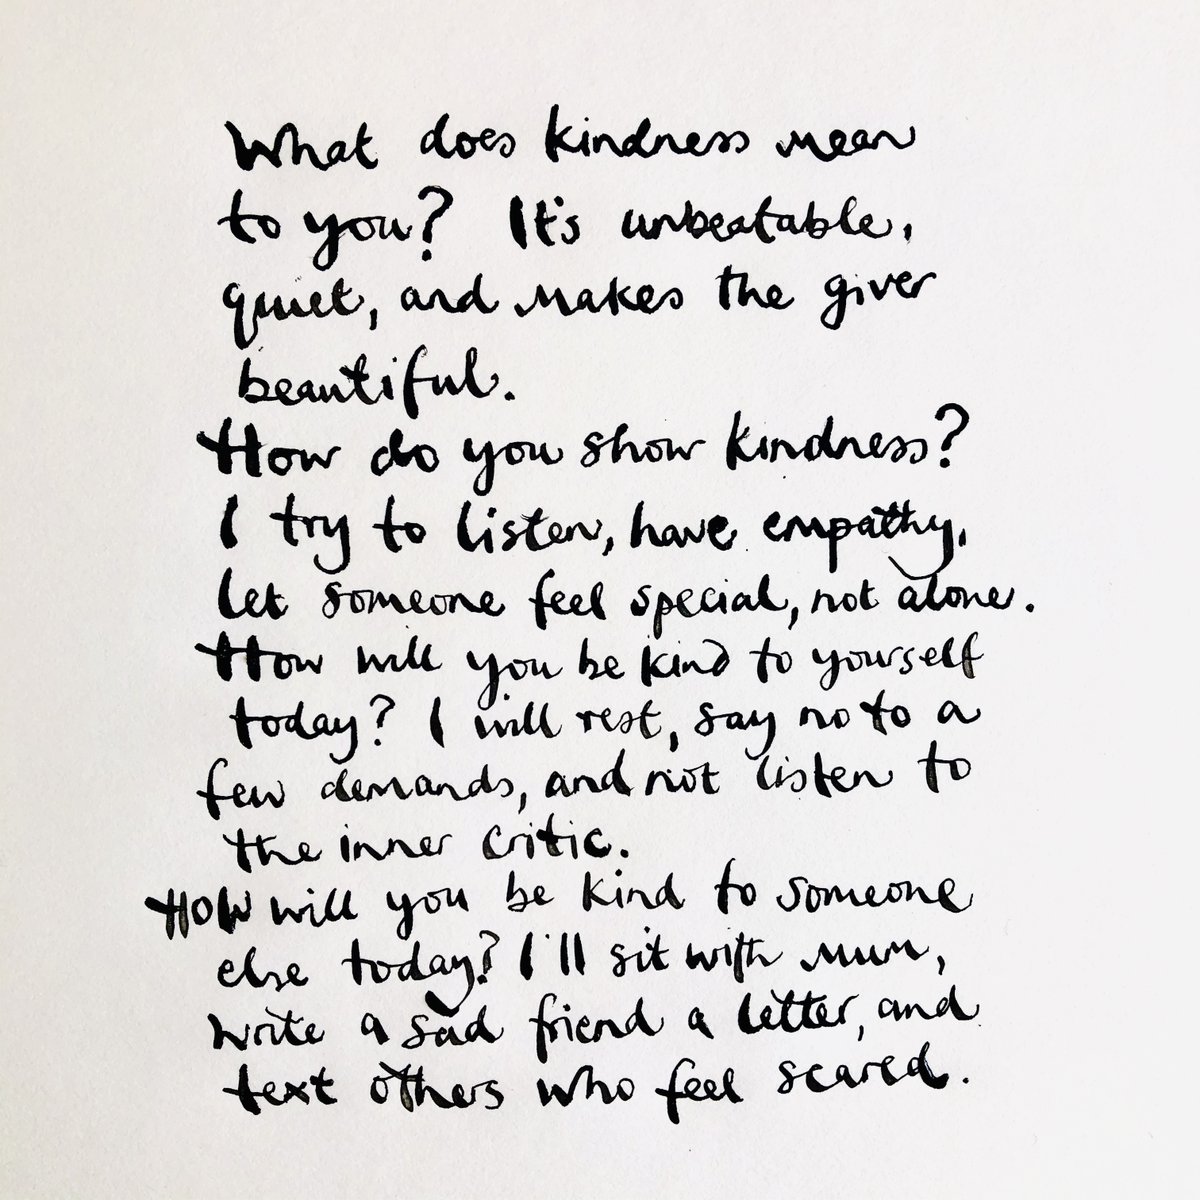 What does kindness mean
to you? It's unbeatable,
quiet, and makes the giver
beautiful.
How do you show kindness?
I try to listen, have empathy,
let someone feel special, not alone.
How will you be kind to yourself
today? I will rest, say no to a
few demands, and not listen to
the inner critic.
How will you be kind to someone
else today? I'll sit with mum,
write a sad friend a letter, and
text others who feel scared.